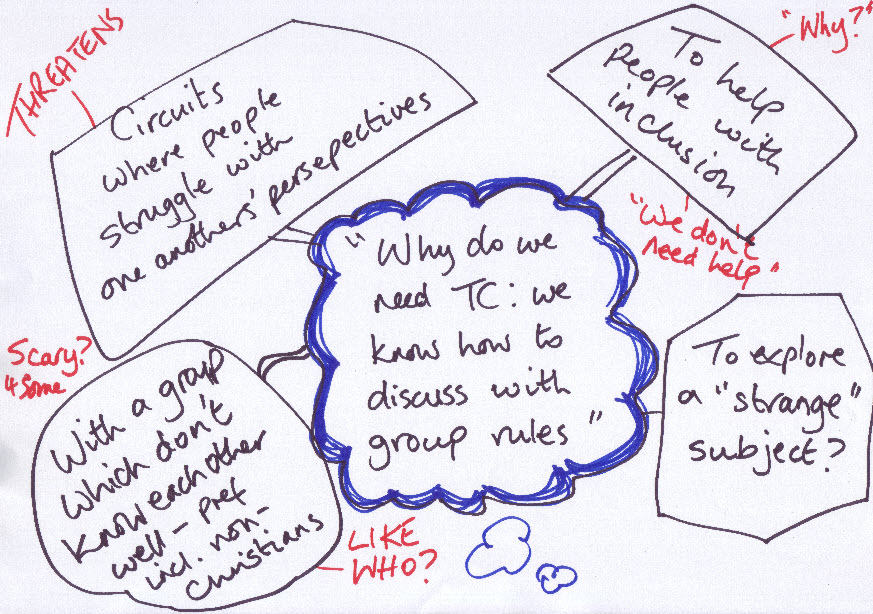 THREATENS
Circuits
where people
struggle with
one anothers' persepectives
"Why?"
To help
people with
inclusion
"We don't
need help"
"Why do we
need TC: we
know how to
discuss with
group rules"
Scary?
4 some
With a group
which don't
know each other
well - pref
incl. non-
christians
LIKE
WHO?
To explore
a "strange"
subject?